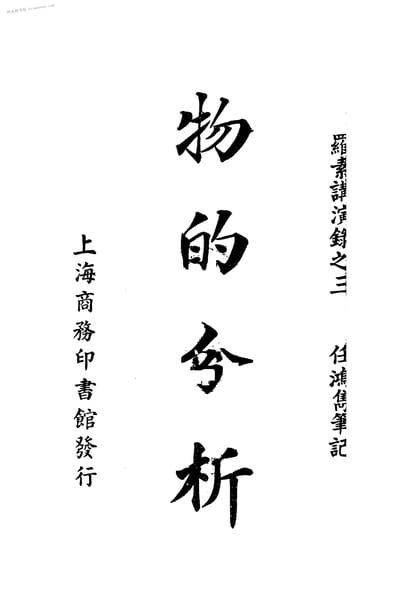 羅素講演錄之三 任鴻雋筆記
物的分析
上海商務印書館發行